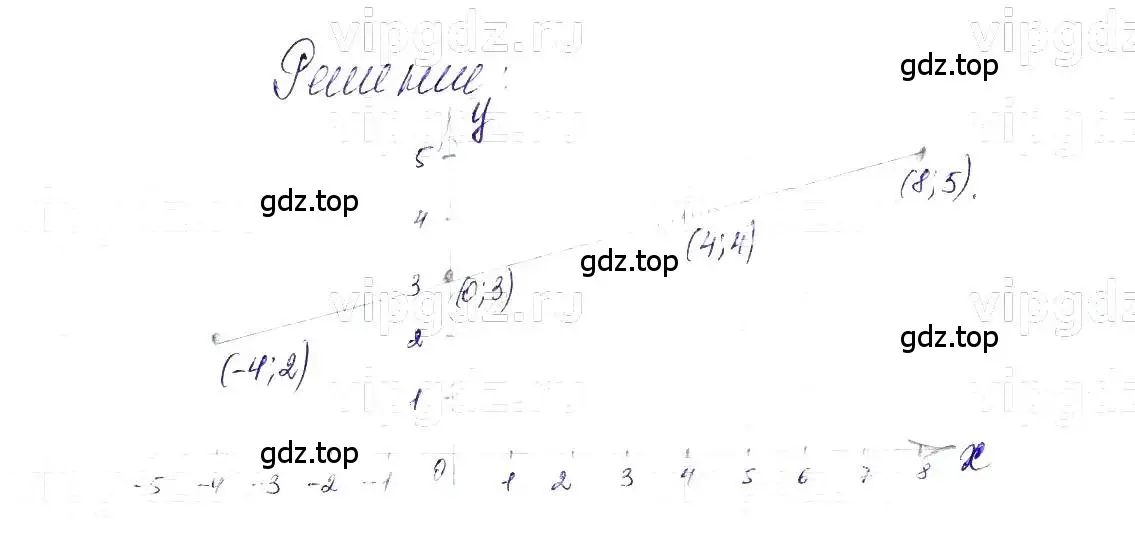 vipgdz.ru
Решение:
gdz.top
y
5
(8; 5).
gdz.top
4
(4; 4)
gdz.top
3
(0; 3)
vipgdz.ru
2
gdz.top
(-4; 2)
1
gdz.top
-5 -4 -3 -2 -1 0 1 2 3 4 5 6 7 8 x
gdz.top